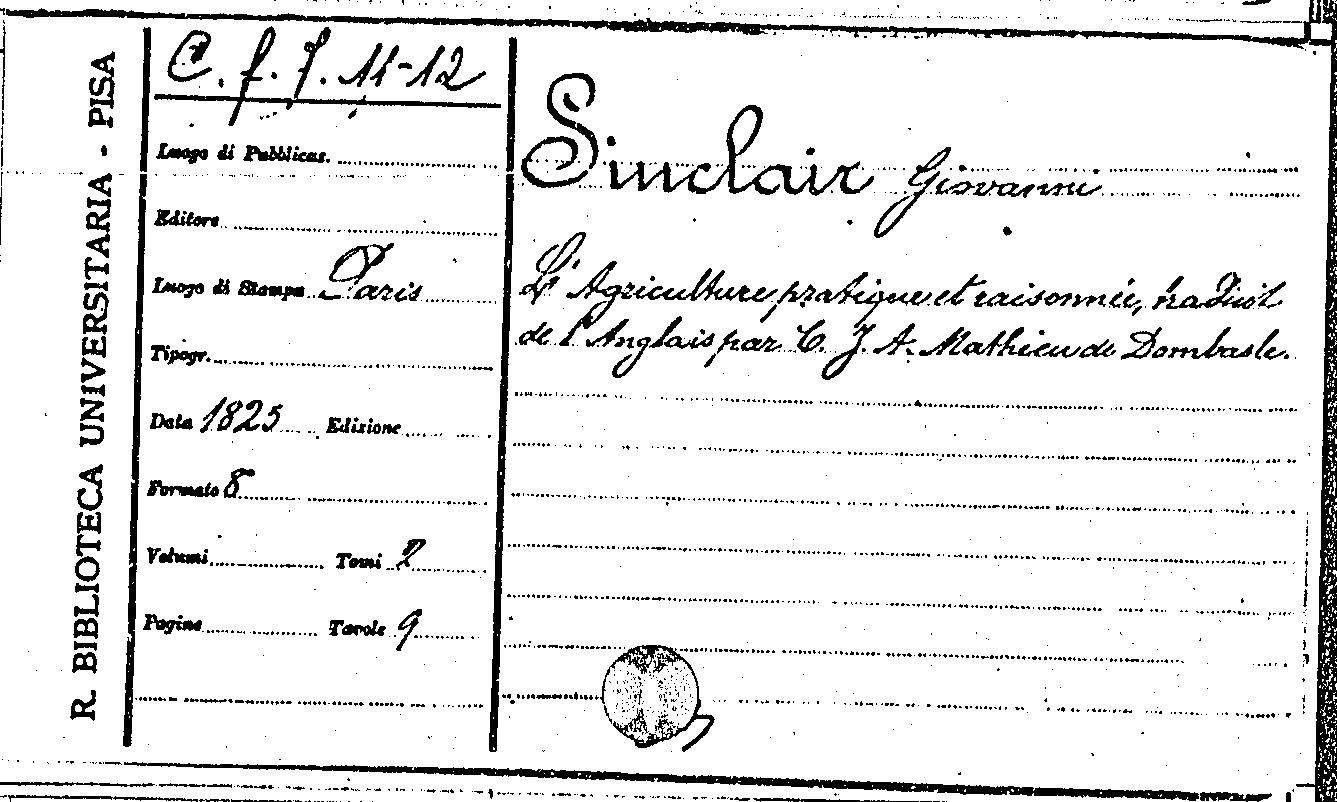 R. BIBLIOTECA UNIVERSITARIA - PISA
C. f. 7. 11-12
Luogo di Pubblicaz.
Editore
Luogo di Stampa Paris
Tipogr.
Data 1825 Edizione
Formato 8
Volumi Tomi 2
Pagine Tavole 9
Sinclair Giovanni
L'Agriculture pratique et raisonnée, traduit
de l'Anglais par C. J. A. Mathieu de Dombasle.